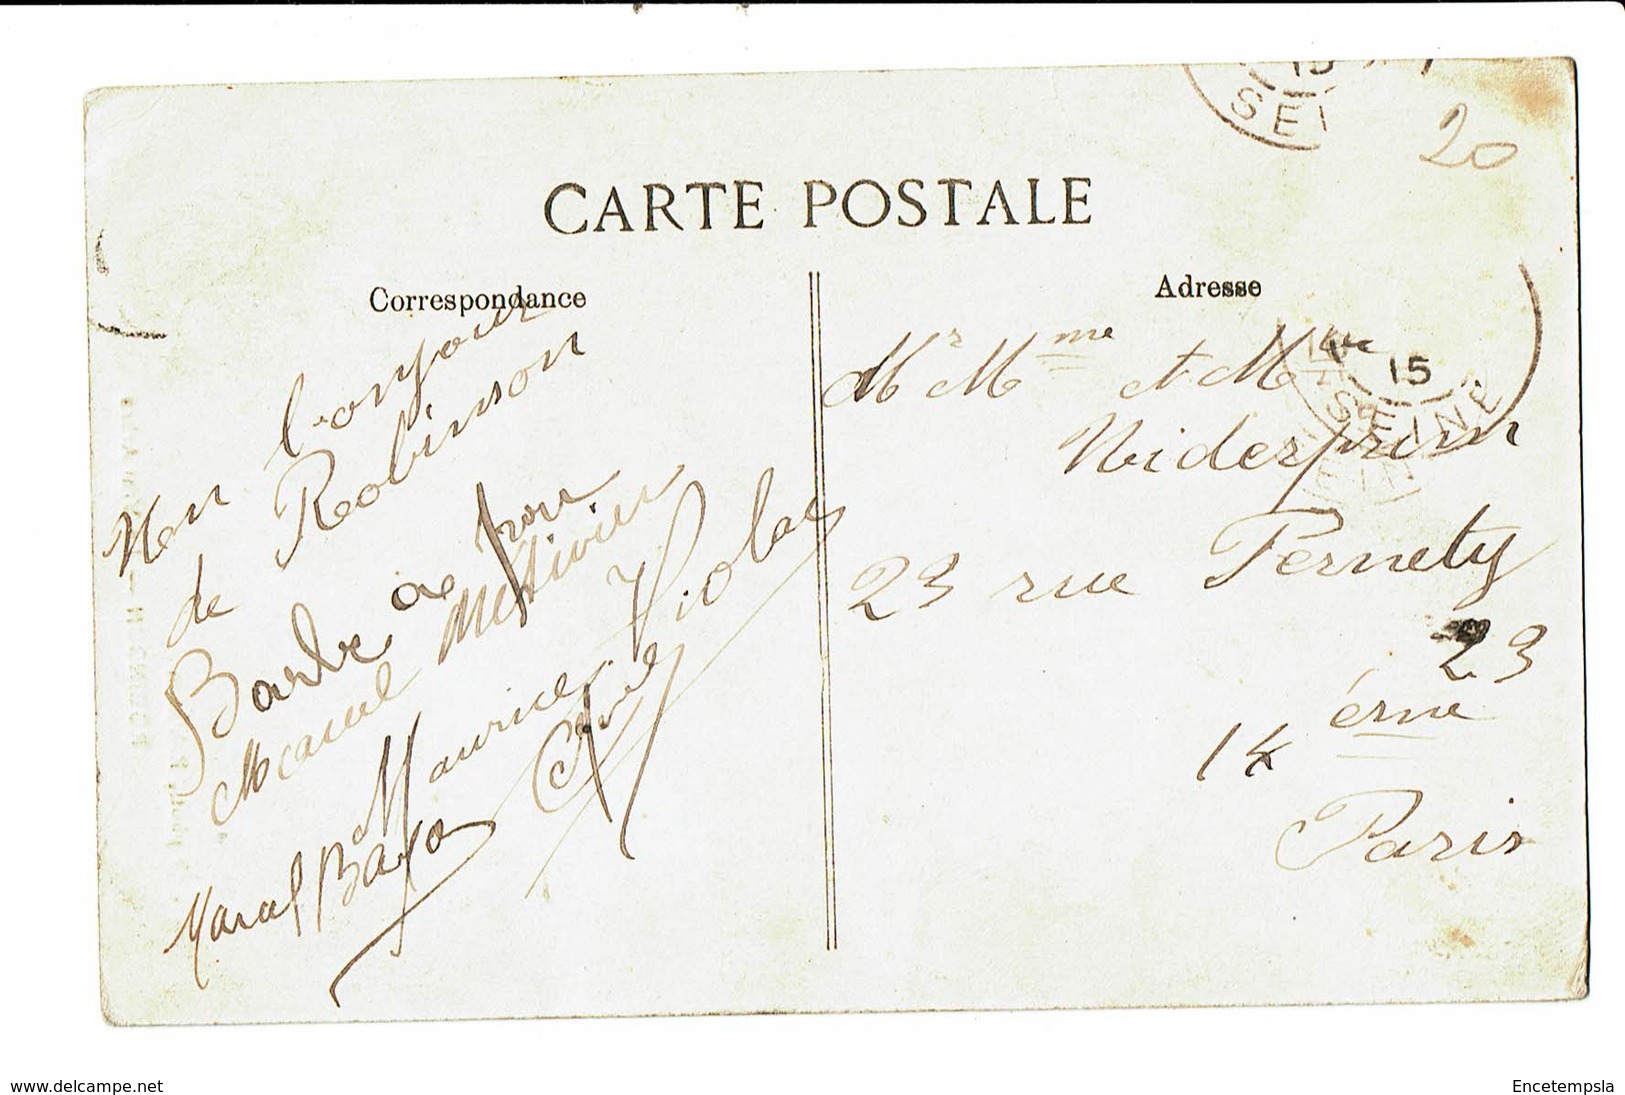 20
SEI
CARTE POSTALE
Correspondance
Mon bonjour
de Robinson
Marcel Metivier
Maurice Violas
Marcel Bayo
Adresse
15
SEINE
Mr Mme et Mlle
Niderprim
23 rue Pernety
23
14 ème
Paris
www.delcampe.net
Encetempsla